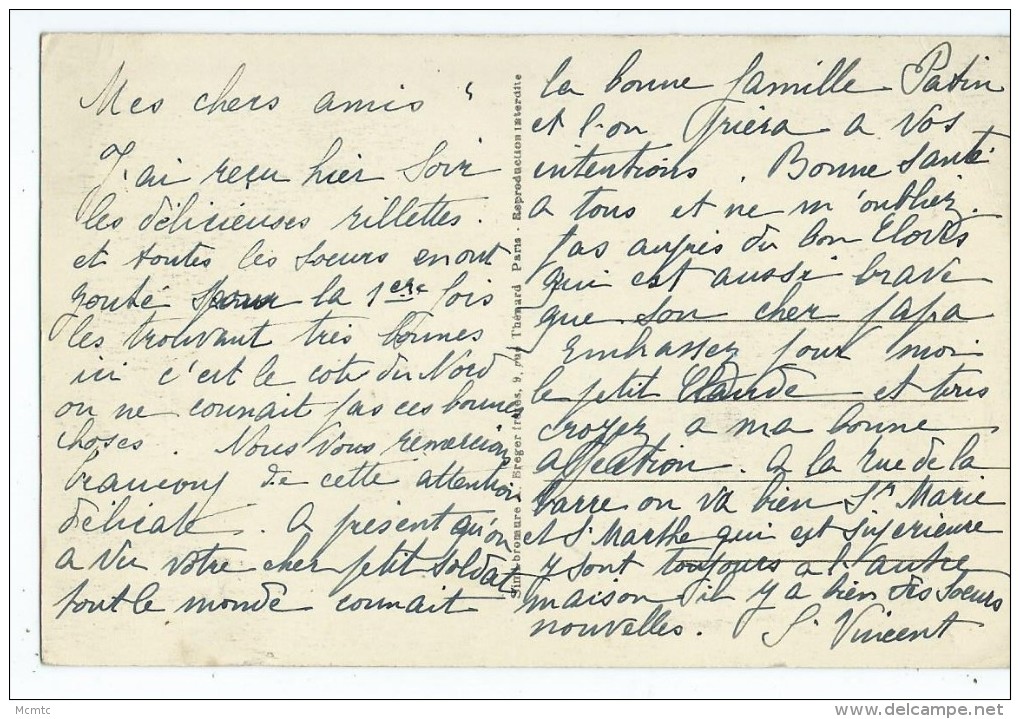 Mes chers amis
J'ai reçu hier soir
les délicieuses rillettes.
et toutes les soeurs en ont
gouté pour la 1ere fois
les trouvant très bonnes
ici c'est le coté du Nord
on ne connait pas ces bonnes
choses. Nous vous remercions
beaucoup de cette attention
délicate. A présent qu'on
a vu votre cher petit soldat
tout le monde connait
Simili-bromure - Breger frères, 9, rue Thénard Paris - Reproduction interdite
la bonne famille Patin
et l'on priera a vos
intentions. Bonne santé
a tous et ne m'oubliez
pas auprès du bon Clovis
qui est aussi brave
que son cher papa
Embrassez pour moi
le petit Claude et tous
croyez a ma bonne
affection. A la rue de la
barre on va bien Sr Marie
et Sr Marthe qui est supérieure
y sont toujours a l'autre
maison il y a bien des soeurs
nouvelles. Sr Vincent
Mcmtc
www.delcampe.net